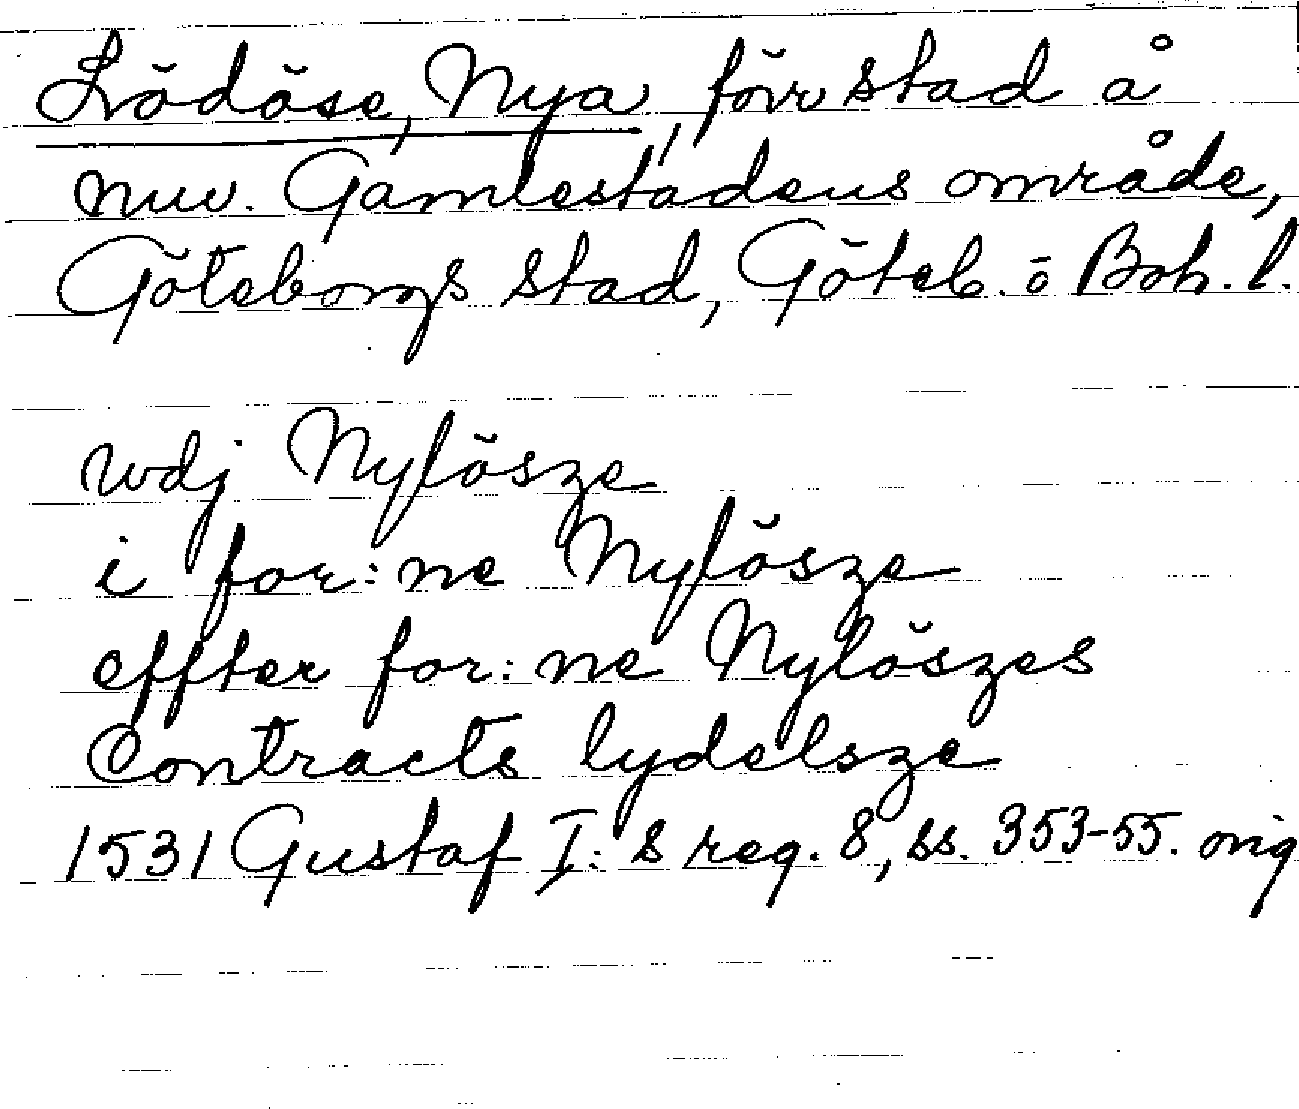 Lödöse, Nya, förr stad å
nuv. Gamlestadens område,
Göteborgs stad, Göteb. o Boh. l.
wdj Nylösze
i for:ne Nylösze
effter for:ne Nylöszes
Contracts lydelsze
1531 Gustaf I:s reg. 8, ss. 353-55. orig